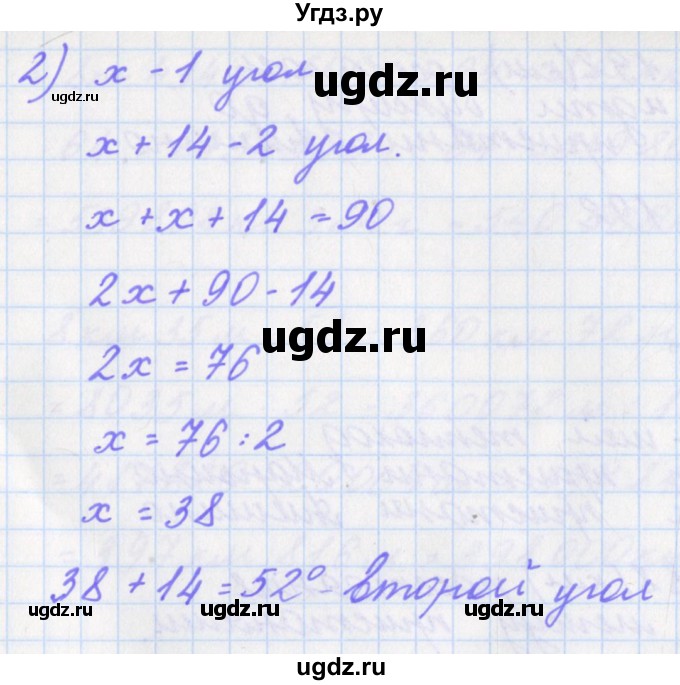 Угдз.ру
2) x - 1 угол
ugdz.ru
ugdz.ru
x + 14 - 2 угол.
x + x + 14 = 90
2x + 90 - 14
ugdz.ru
2x = 76
x = 76 : 2
x = 38
ugdz.ru
38 + 14 = 52° - второй угол
ugdz.ru
ugdz.ru
ugdz.ru
ugdz.ru